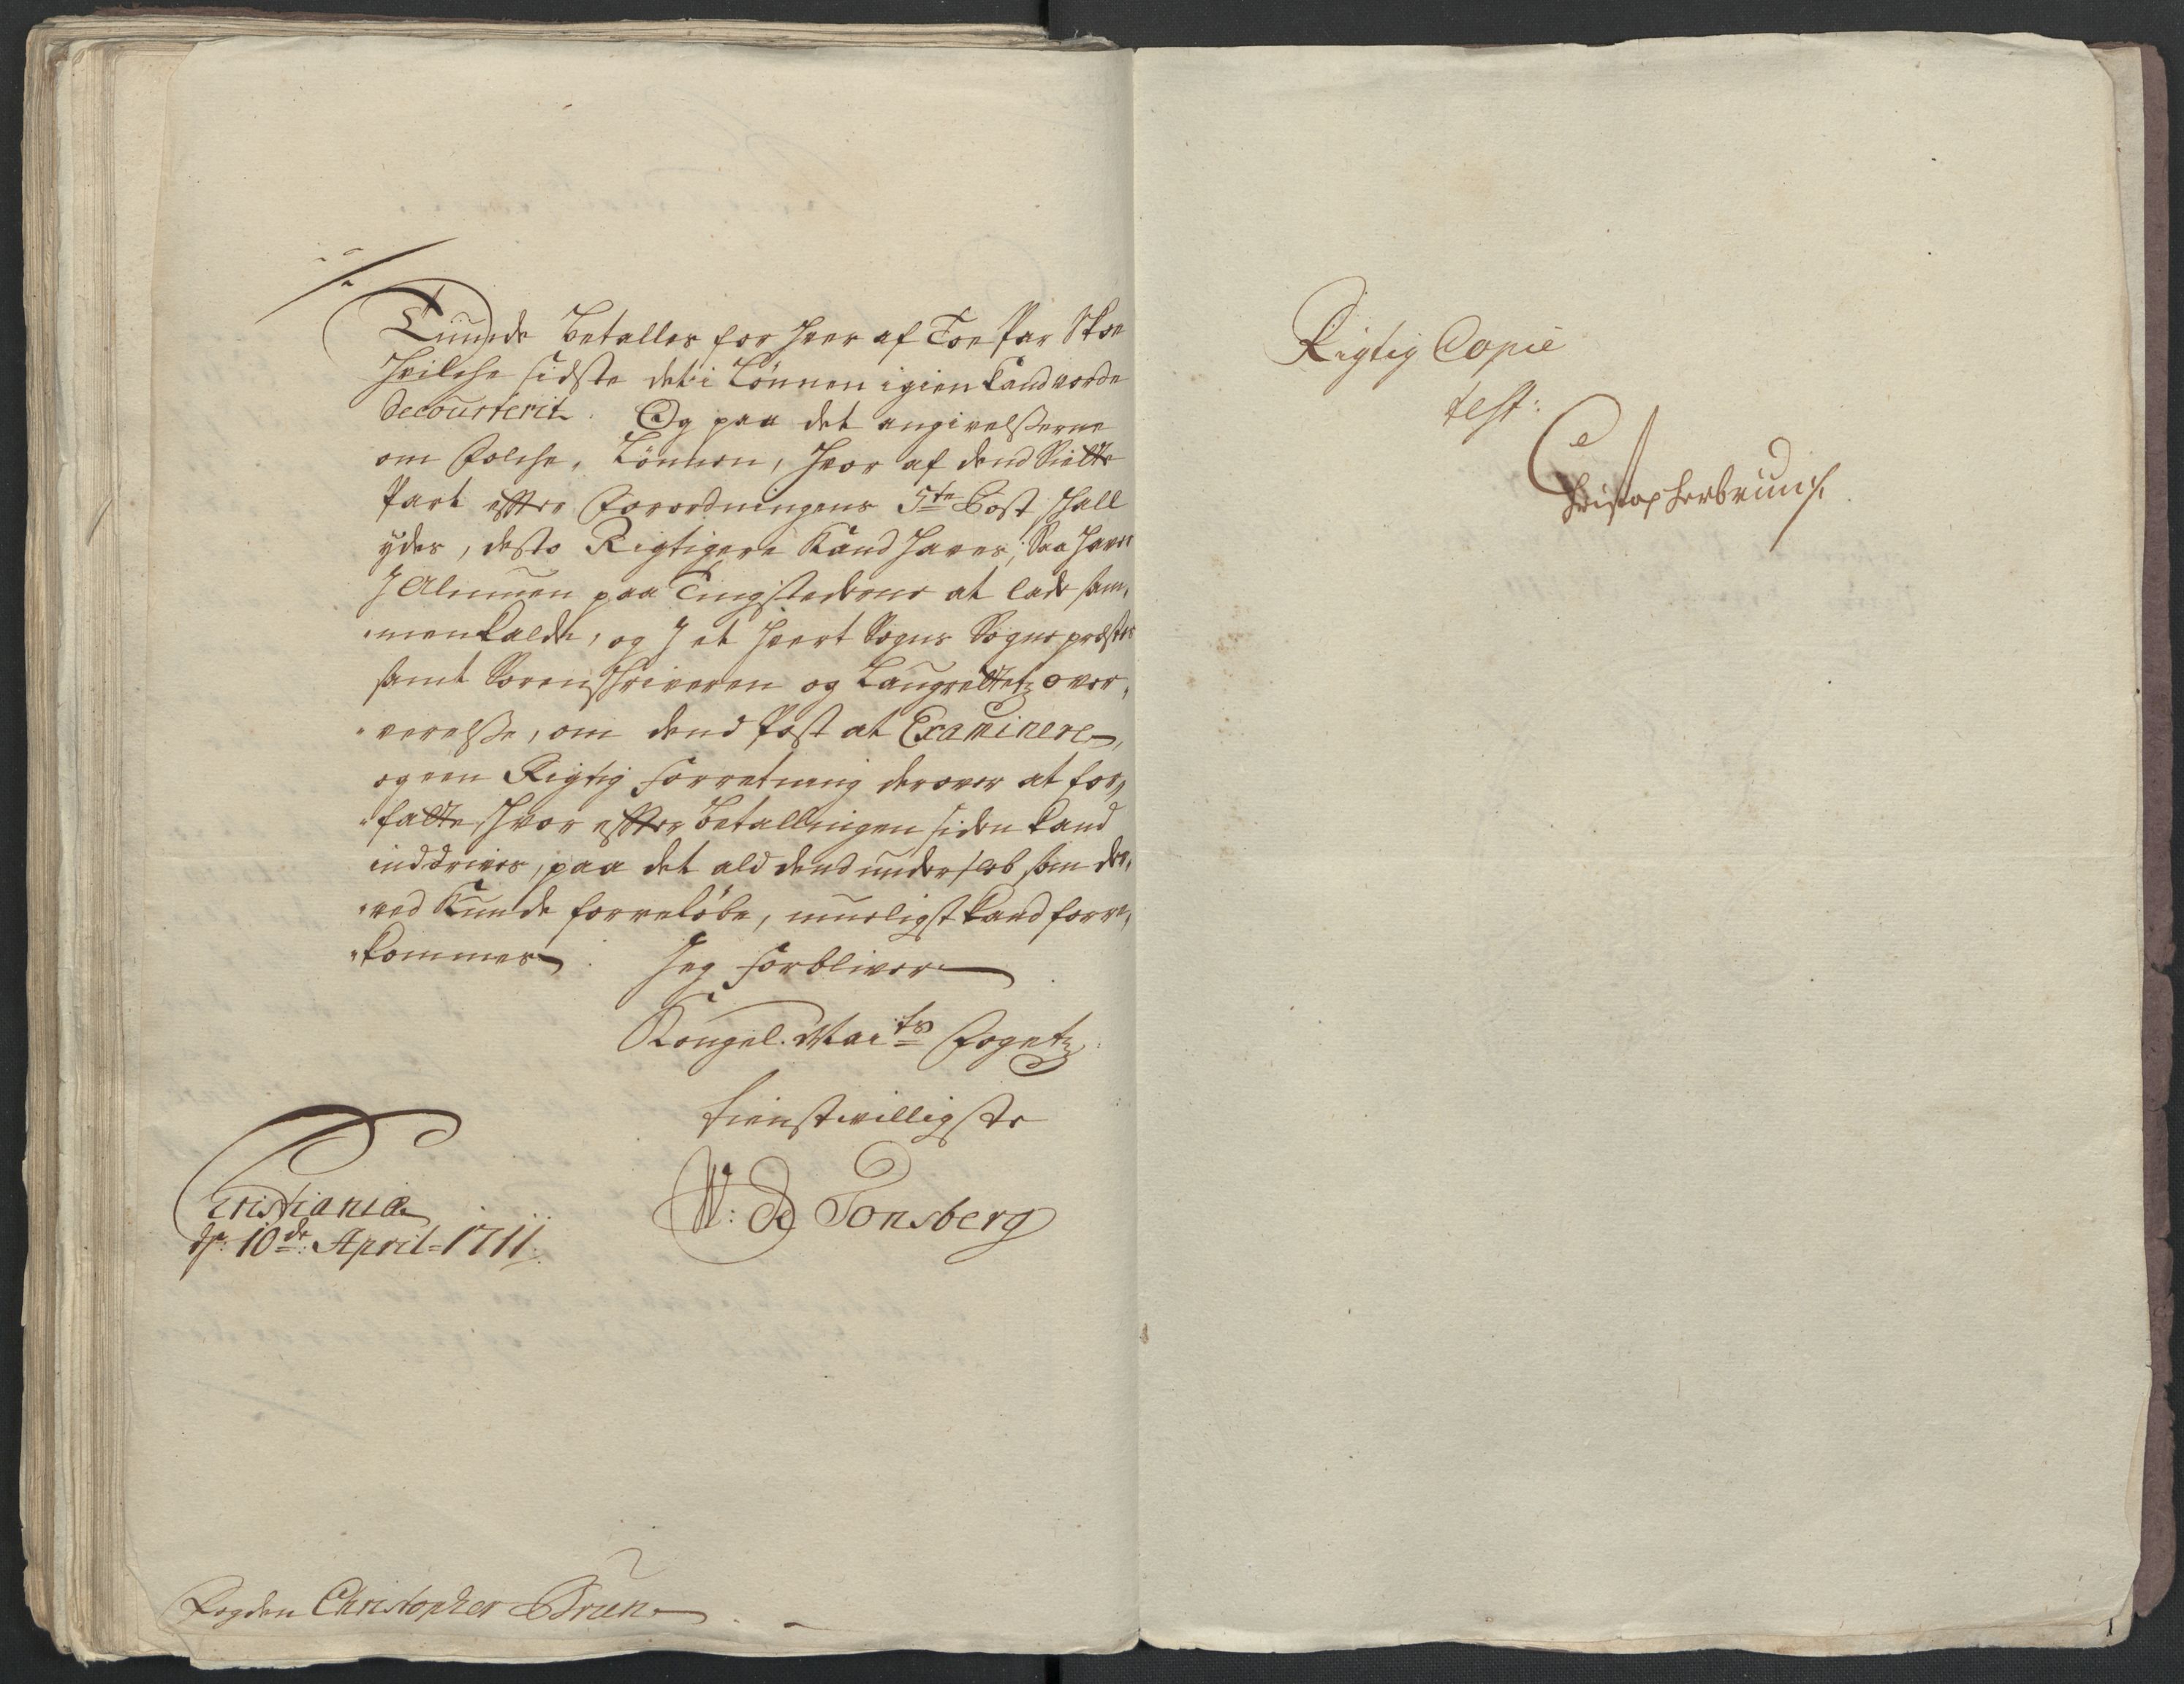 Quinde betalles for hver af Toe Par Skoe
hvilche sidste det i Lønnen igien Kand vorde
Decourterit. Og paa det angivelsserne
om Folche, Lønnen, hvor af dend Siette
Part efftter Forordningens 5te Post schall
ydes, desto Rigtigere Kand haves, Saa haver
I Almuen paa Tingstederne at lade sam,
menkalde, og I et hvert Sogns Sognepræstes
samt Sorenschriveren og Laugrettetz over,
verelsse, om dend Post at Examinere,
og een Rigtig Forretning derover at for,
fatte, hvor effter betallingen siden kand
inddrives, paa det ald dend undersleb som der,
ved Kunde forreløbe, mueligst kand forre,
kommes. Jeg Forbliver
Kongel. Maits Fogetz
tienstwilligste
W: de Tonsberg
Cristiania
dn: 10de: April 1711.
Fogden Christopher Brun
Rigtig Copie
test:
Christopherbrun